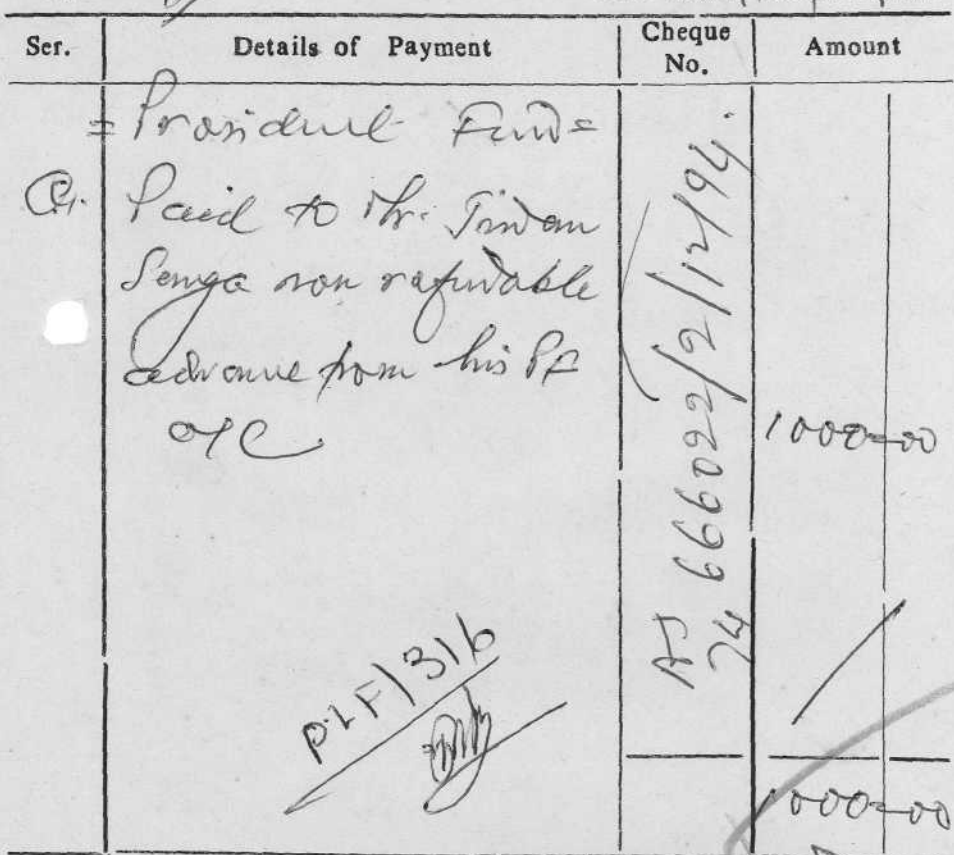 Ser. Details of Payment Cheque No. Amount
= Provident Fund =
Paid to Mr. Jiwan
Senga non refundable
advance from his PF
a/c
AJ
74 666022/2/12/94.
1000=00
P.L F/316
1000=00